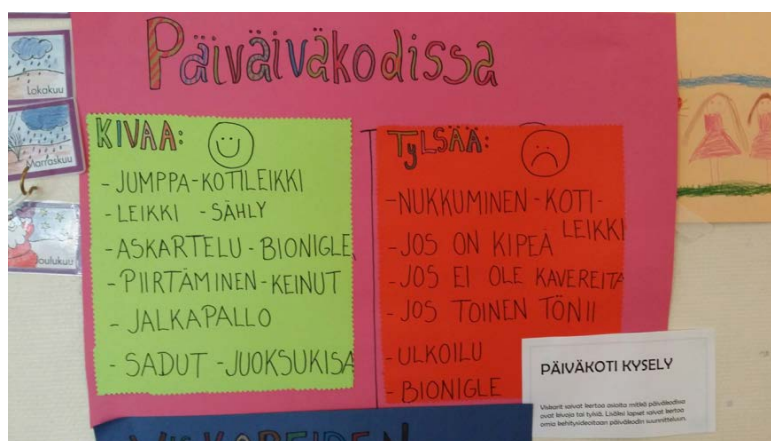 Päiväiväkodissa
Lokakuu
Marraskuu
Joulukuu
KIVAA:
- JUMPPA - KOTILEIKKI
- LEIKKI - SÄHLY
- ASKARTELU - BIONIGLE
- PIIRTÄMINEN - KEINUT
- JALKAPALLO
- SADUT - JUOKSUKISA
TYLSÄÄ:
- NUKKUMINEN - KOTI-
LEIKKI
- JOS ON KIPEÄ
- JOS EI OLE KAVEREITA
- JOS TOINEN TÖNII
- ULKOILU
- BIONIGLE
PÄIVÄKOTI KYSELY
Viskarit saivat kertoa asioita mitkä päiväkodissa
ovat kivoja tai tylsiä. Lisäksi lapset saivat kertoa
omia kehitysideoitaan päiväkodin suunnitteluun.
VISKAREIDEN